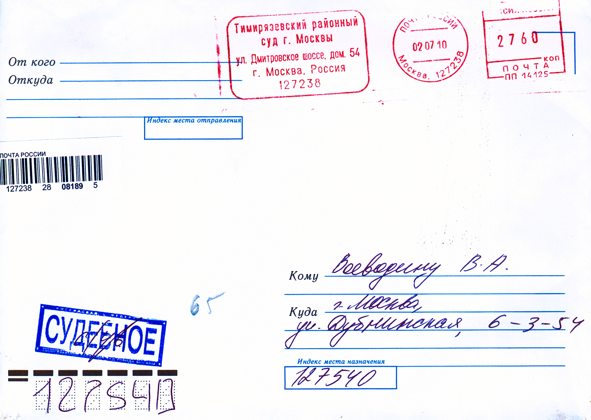 Тимирязевский районный
суд г. Москвы
ул. Дмитровское шоссе, дом. 54
г. Москва, Россия
127238
ПОЧТА РОССИИ
02 07 10
Москва, 127238
2760
КОП
ПОЧТА
ПП 14125
От кого
Откуда
Индекс места отправления
ПОЧТА РОССИИ
127238 28 08189 5
Кому Воеводину В.А.
Куда г. Москва,
ул. Дубнинская, 6-3-54
65
СУДЕБНОЕ
Индекс места назначения
127540
127540